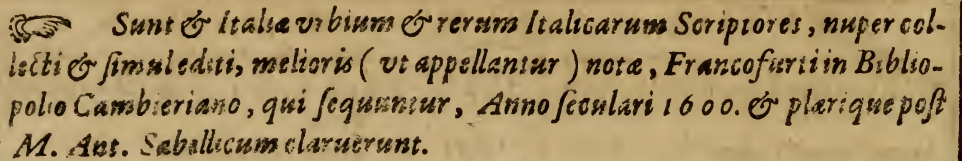 ☞ Sunt & Italiæ vrbium & rerum Italicarum Scriptores, nuper col-
lecti & ſimul editi, melioris ( vt appellantur ) notæ, Francofurti in Biblio-
polio Cambieriano, qui ſequuntur, Anno ſeculari 1600. & plærique poſt
M. Ant. Sabellicum claruerunt.